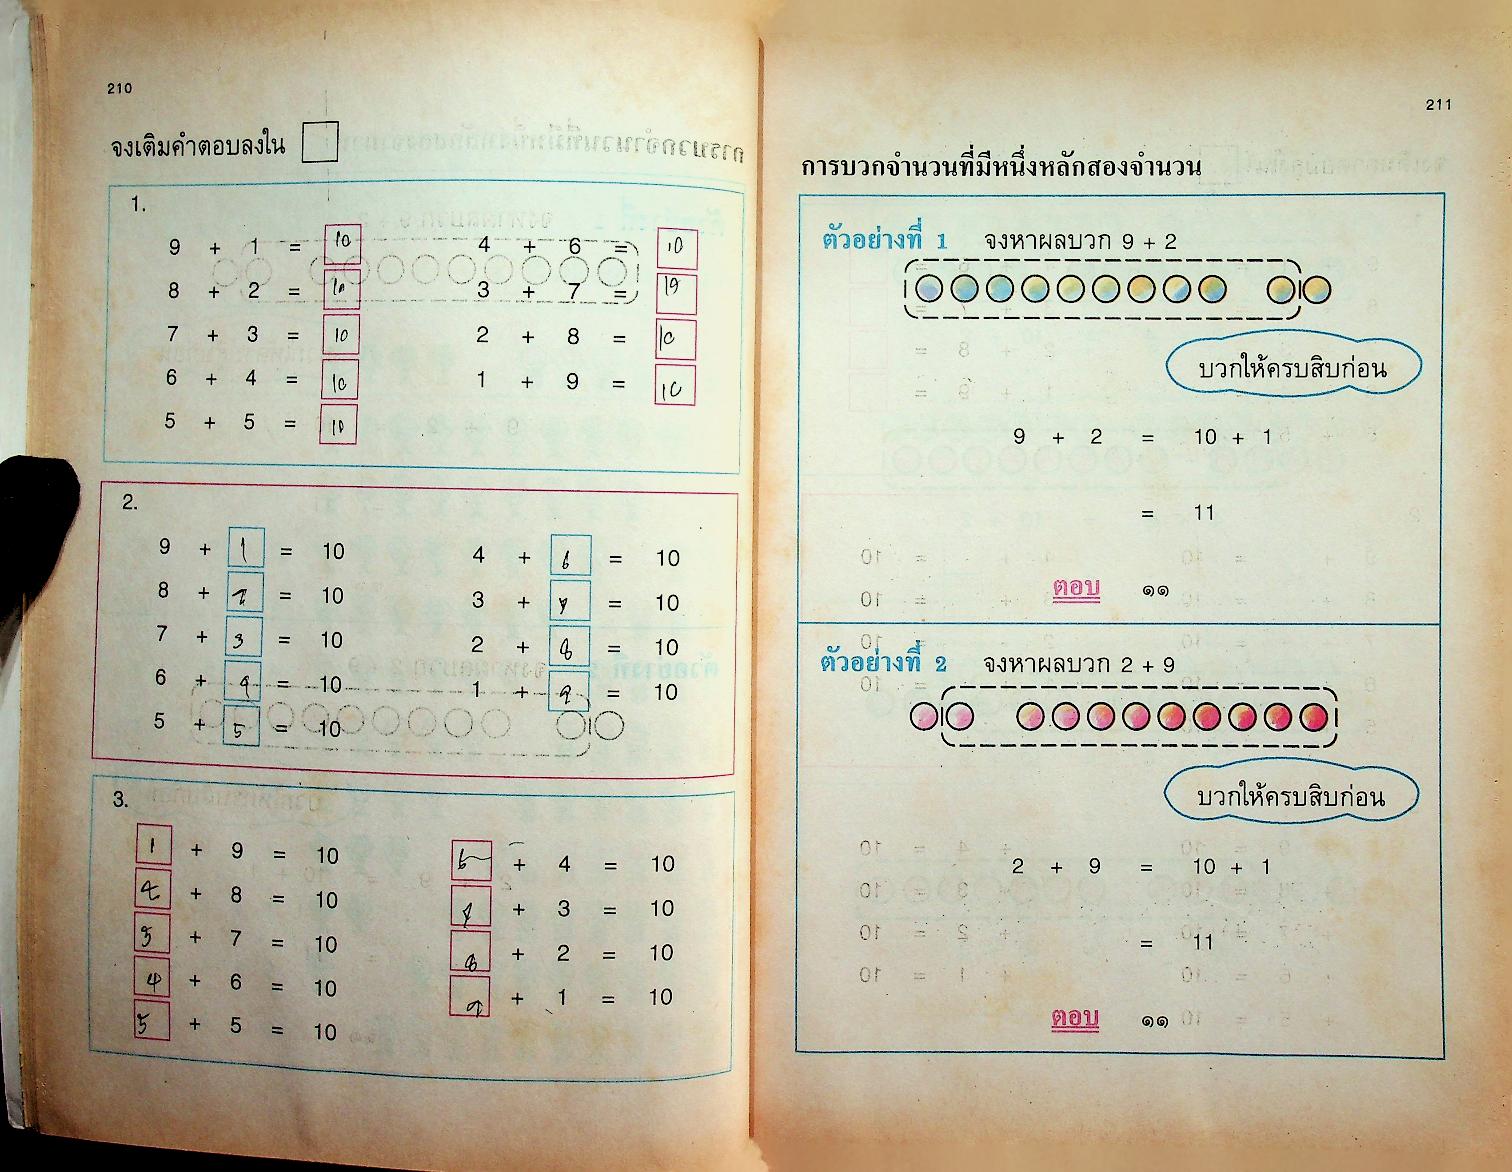 210
จงเติมคำตอบลงใน
1.
9 + 1 = 10 4 + 6 = 10
8 + 2 = 10 3 + 7 = 10
7 + 3 = 10 2 + 8 = 10
6 + 4 = 10 1 + 9 = 10
5 + 5 = 10
2.
9 + 1 = 10 4 + 6 = 10
8 + 2 = 10 3 + 7 = 10
7 + 3 = 10 2 + 8 = 10
6 + 4 = 10 1 + 9 = 10
5 + 5 = 10
3.
1 + 9 = 10 6 + 4 = 10
2 + 8 = 10 7 + 3 = 10
3 + 7 = 10 8 + 2 = 10
4 + 6 = 10 9 + 1 = 10
5 + 5 = 10
211
การบวกจำนวนที่มีหนึ่งหลักสองจำนวน
ตัวอย่างที่ 1 จงหาผลบวก 9 + 2
บวกให้ครบสิบก่อน
9 + 2 = 10 + 1
= 11
ตอบ ๑๑
ตัวอย่างที่ 2 จงหาผลบวก 2 + 9
บวกให้ครบสิบก่อน
2 + 9 = 10 + 1
= 11
ตอบ ๑๑